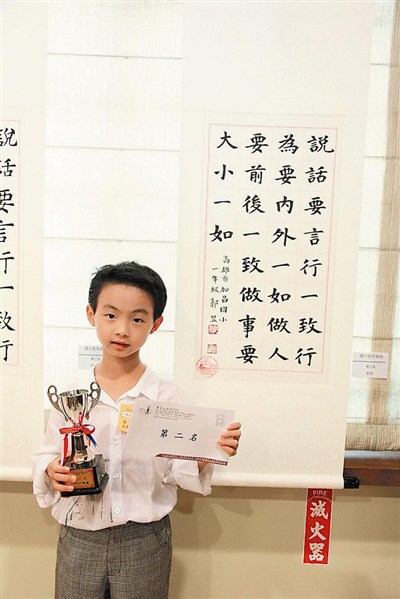 說話要言行一致行
為要內外一如做人
要前後一致做事要
大小一如
高雄市加昌國小
一年級郭昱
說話要言行一致行
第二名
FIRE
滅火器